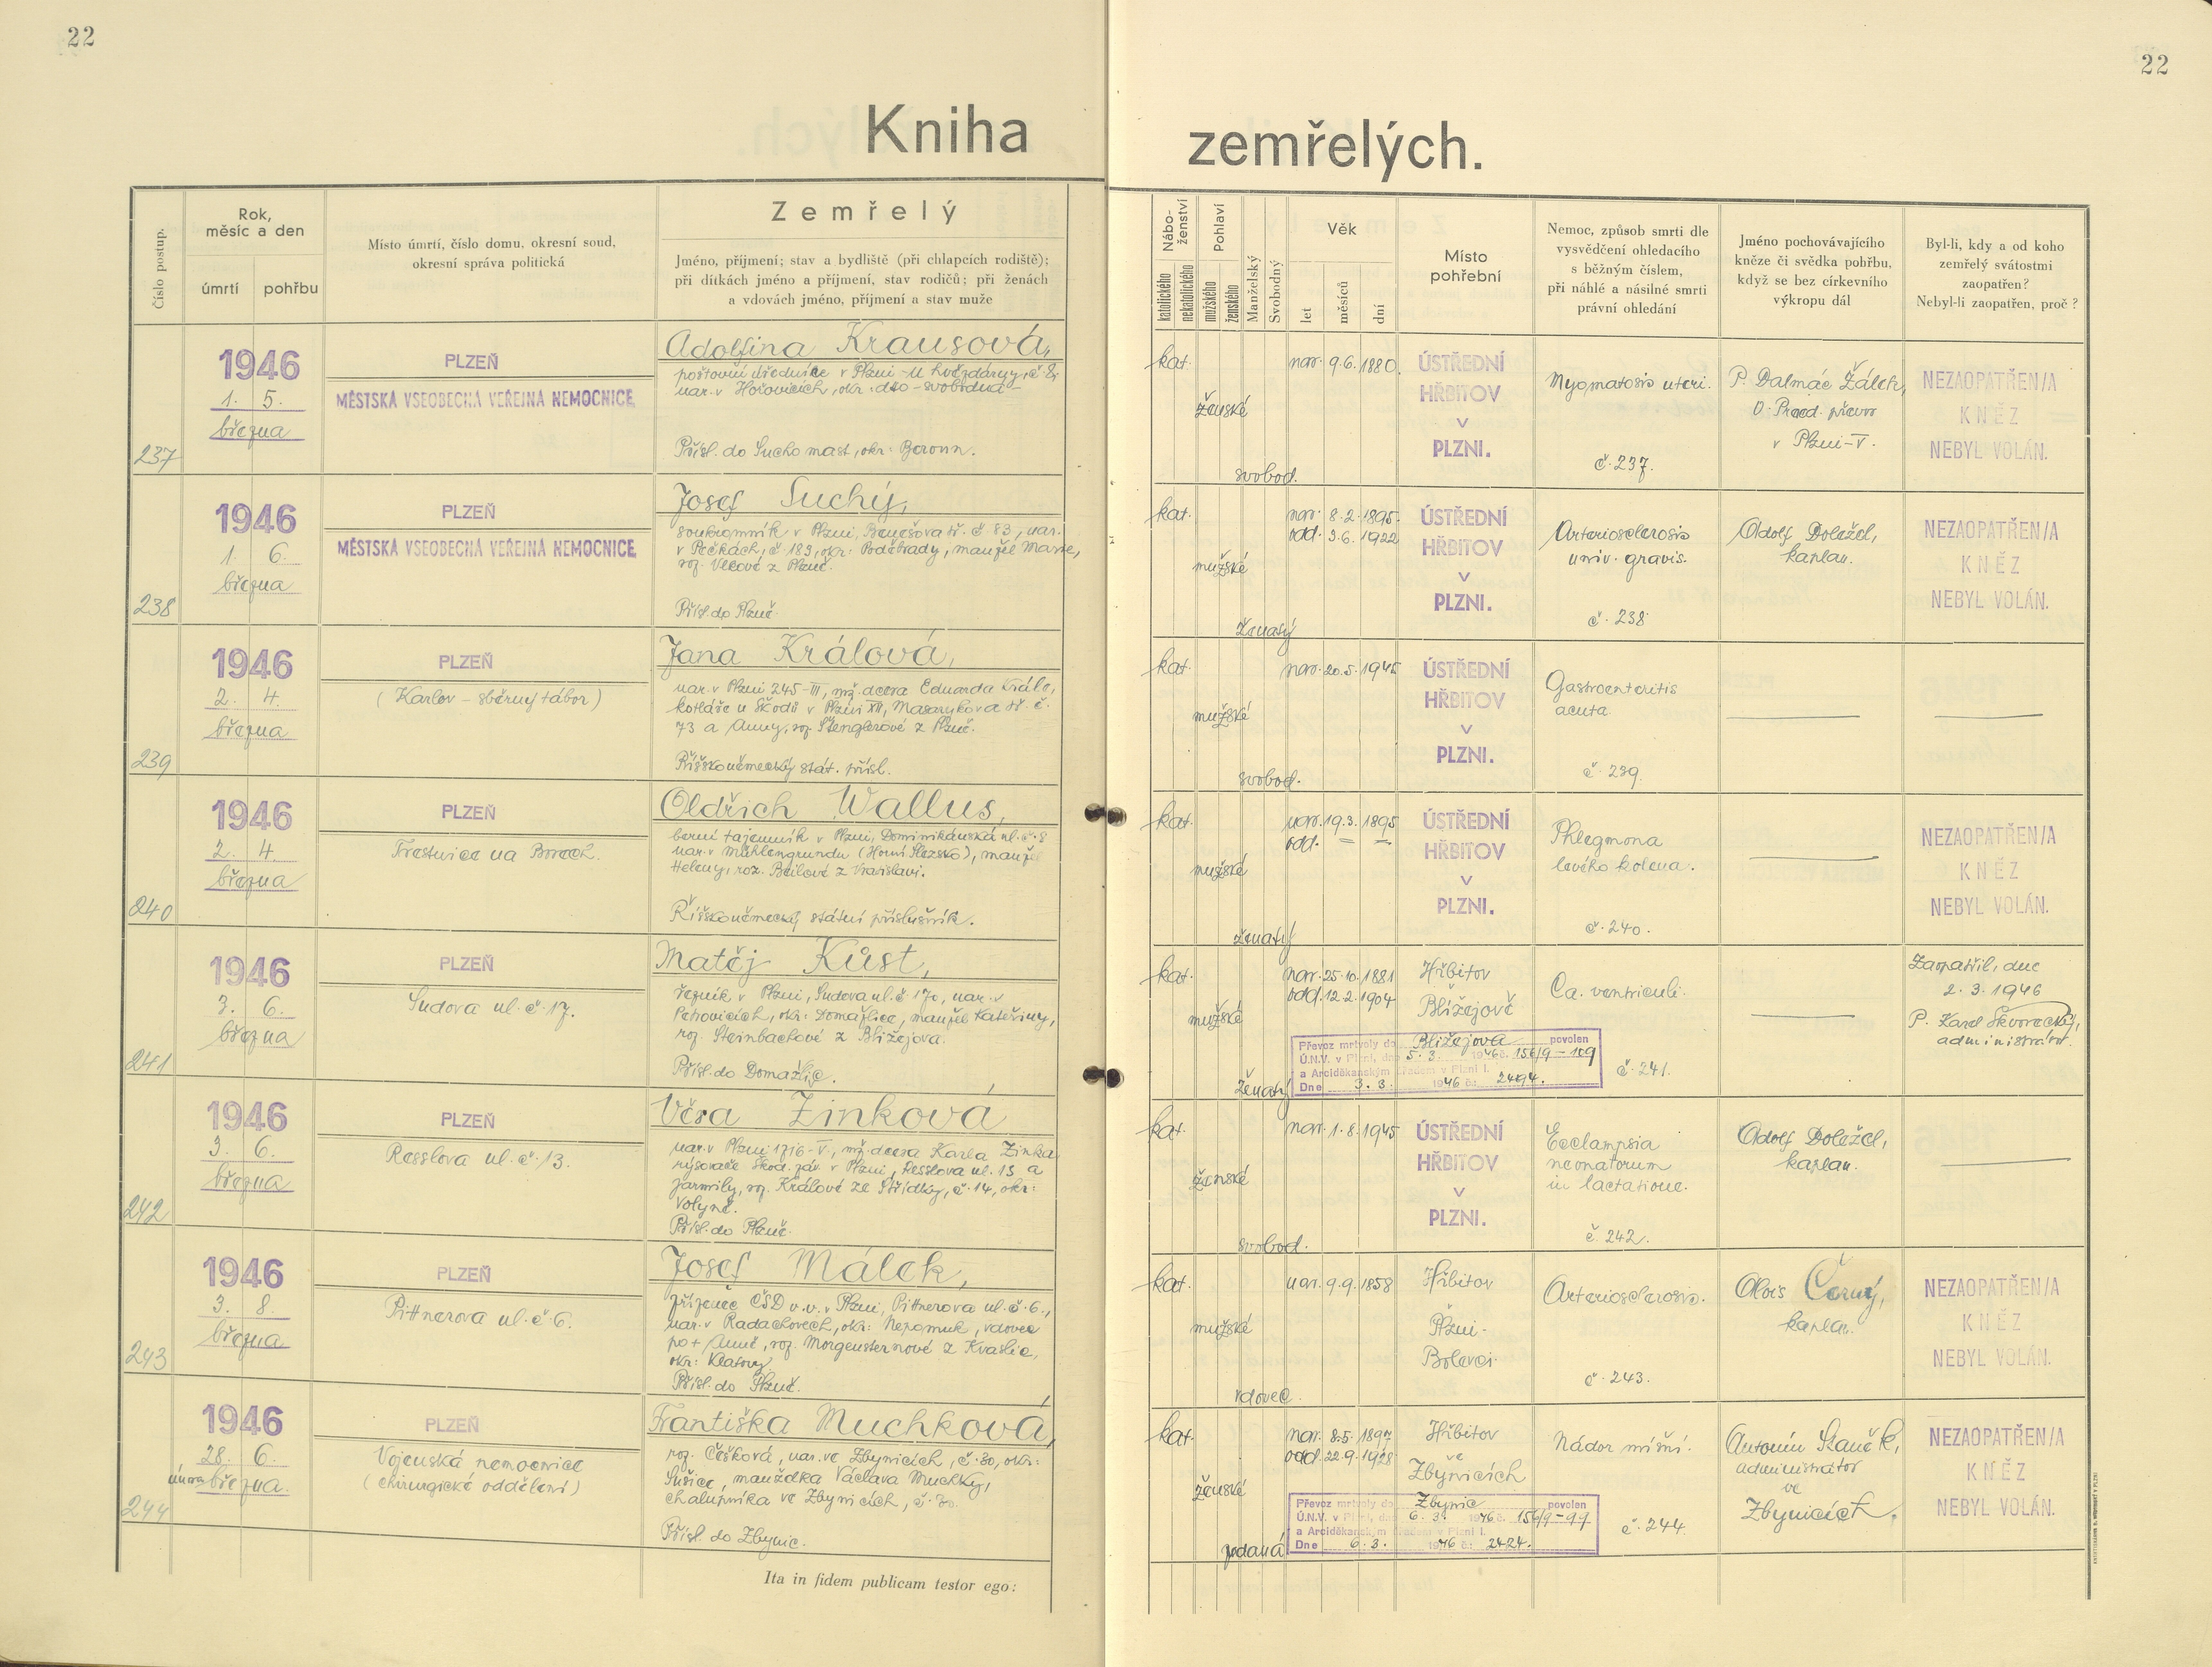 22
22
Kniha zemřelých.
Číslo postup.
Rok,
měsíc a den
úmrtí
pohřbu
Místo úmrtí, číslo domu, okresní soud,
okresní správa politická
Zemřelý
Jméno, příjmení; stav a bydliště (při chlapcích rodiště);
při dítkách jméno a příjmení, stav rodičů; při ženách
a vdovách jméno, příjmení a stav muže
Nábo-
ženství
katolického
nekatolického
Pohlaví
mužského
ženského
Manželský
Svobodný
Věk
let
měsíců
dní
Místo
pohřební
Nemoc, způsob smrti dle
vysvědčení ohledacího
s běžným číslem,
při náhlé a násilné smrti
právní ohledání
Jméno pochovávajícího
kněze či svědka pohřbu,
když se bez církevního
výkropu dál
Byl-li, kdy a od koho
zemřelý svátostmi
zaopatřen?
Nebyl-li zaopatřen, proč ?
237
1946
1. 5.
března
PLZEŇ
MĚSTSKÁ VŠEOBECNÁ VEŘEJNÁ NEMOCNICE
Adolfina Krausová,
poštovní úřednice v Plzni - U hvězdárny, č. 8,
nar. v Hořovicích, okr. dto - svobodná
Přísl. do Suchomast, okr. Beroun.
kat.
ženské
svobod.
nar. 9.6.1880.
ÚSTŘEDNÍ
HŘBITOV
V
PLZNI.
Myomatosis uteri.
č. 237.
P. Dalmác Žálek,
O. Praed. převor
v Plzni-V.
NEZAOPATŘEN/A
KNĚZ
NEBYL VOLÁN.
238
1946
1. 6.
března
PLZEŇ
MĚSTSKÁ VŠEOBECNÁ VEŘEJNÁ NEMOCNICE
Josef Suchý,
soukromník v Plzni, Benešova tř. č. 83, nar.
v Pečkách, č. 183, okr. Poděbrady, manžel Marie,
roz. Vlkové z Plzně.
Přísl. do Plzně.
kat.
mužské
ženatý
nar. 8.2.1895.
odd. 3.6.1922
ÚSTŘEDNÍ
HŘBITOV
V
PLZNI.
Arteriosclerosis
univ. gravis.
č. 238
Adolf Doležel,
kaplan.
NEZAOPATŘEN/A
KNĚZ
NEBYL VOLÁN.
239
1946
2. 4.
března
PLZEŇ
(Karlov - sběrný tábor)
Jana Králová,
nar. v Plzni 245-III, mž. dcera Eduarda Krále,
kotláře u Škodů v Plzni XII, Masarykova tř. č.
73 a Anny, roz. Stenglerové z Plzně.
Říšskoněmecký stát. přísl.
kat.
mužské
svobod.
nar. 20.5.1945
ÚSTŘEDNÍ
HŘBITOV
V
PLZNI.
Gastroenteritis
acuta
č. 239.
240
1946
2. 4.
března
PLZEŇ
Trestnice na Borech.
Oldřich Wallus,
berní tajemník v Plzni, Dominikánská ul. č. 8
nar. v Mühlengrundu (Horní Slezsko), manžel
Heleny, roz. Beilové z Vratislavi.
Říšskoněmecký státní příslušník.
kat.
mužské
ženatý
nar. 19.3.1895
odd. = =
ÚSTŘEDNÍ
HŘBITOV
V
PLZNI.
Phlegmona
levého kolena.
č. 240.
NEZAOPATŘEN/A
KNĚZ
NEBYL VOLÁN.
241
1946
3. 6.
března
PLZEŇ
Sudova ul. č. 17.
Matěj Kůst,
řezník v Plzni, Sudova ul. č. 17, nar. v
okr. Domažlice, manžel Kateřiny,
roz. Steinbachové z Blížejova.
Přísl. do Domažlic.
kat.
mužské
ženatý
nar. 25.10.1881
odd. 12.2.1904
Hřbitov
Blížejově
Převoz mrtvoly do Blížejova povolen
Ú.N.V. v Plzni, dne 5.3. 1946 č. 156/9-109
a Arciděkanským úřadem v Plzni I.
Dne 3.3. 1946 č.: 2494.
Ca. ventriculi.
č. 241.
Zaopatřil, dne
2.3.1946
P. Karel Škvorecký,
administrátor.
242
1946
3. 6.
března
PLZEŇ
Resslova ul. č. 13.
Věra Zinková
nar. v Plzni 1716-V, mž. dcera Karla Zinka
rýsovače Škod. záv. v Plzni, Resslova ul. 13 a
Jarmily, roz. Králové ze Střídky, č. 14, okr.
Volyně.
Přísl. do Plzně.
kat.
ženské
svobod.
nar. 1.8.1945
ÚSTŘEDNÍ
HŘBITOV
V
PLZNI.
Ecclampsia
neonatorum
in lactatione.
č. 242.
Adolf Doležel,
kaplan.
243
1946
3. 8.
března
PLZEŇ
Pittnerova ul. č. 6.
Josef Málek,
zřízenec ČSD v.v. v Plzni, Pittnerova ul. č. 6.,
nar. v Radachovech, okr: Nepomuk, vdovec
po + Anně, roz. Morgensternové z Kvaslic,
okr: Klatovy
Přísl. do Plzně.
kat.
mužské
vdovec.
nar. 9.9.1858
Hřbitov
Plzni-
Bolevci
Arteriosclerosis.
č. 243.
Alois Černý,
kaplan.
NEZAOPATŘEN/A
KNĚZ
NEBYL VOLÁN.
244
1946
28. 6.
února března.
PLZEŇ
Vojenská nemocnice
(chirurgické oddělení)
Františka Muchková,
roz. Češková, nar. ve Zbynicích, č. 30, okr:
Sušice, manželka Václava Muchky,
chalupníka ve Zbynicích, č. 30.
Přísl. do Zbynic.
kat.
ženské
vdaná
nar. 8.5.1897
odd. 22.9.1928
Hřbitov
ve
Zbynicích
Převoz mrtvoly do Zbynic povolen
Ú.N.V. v Plzni, dne 6.3. 1946 č. 156/9-99
a Arciděkanským úřadem v Plzni I.
Dne 6.3. 1946 č.: 2424.
Nádor míšní.
č. 244.
Antonín Staněk,
administrátor
ve
Zbynicích.
NEZAOPATŘEN/A
KNĚZ
NEBYL VOLÁN.
Ita in fidem publicam testor ego: